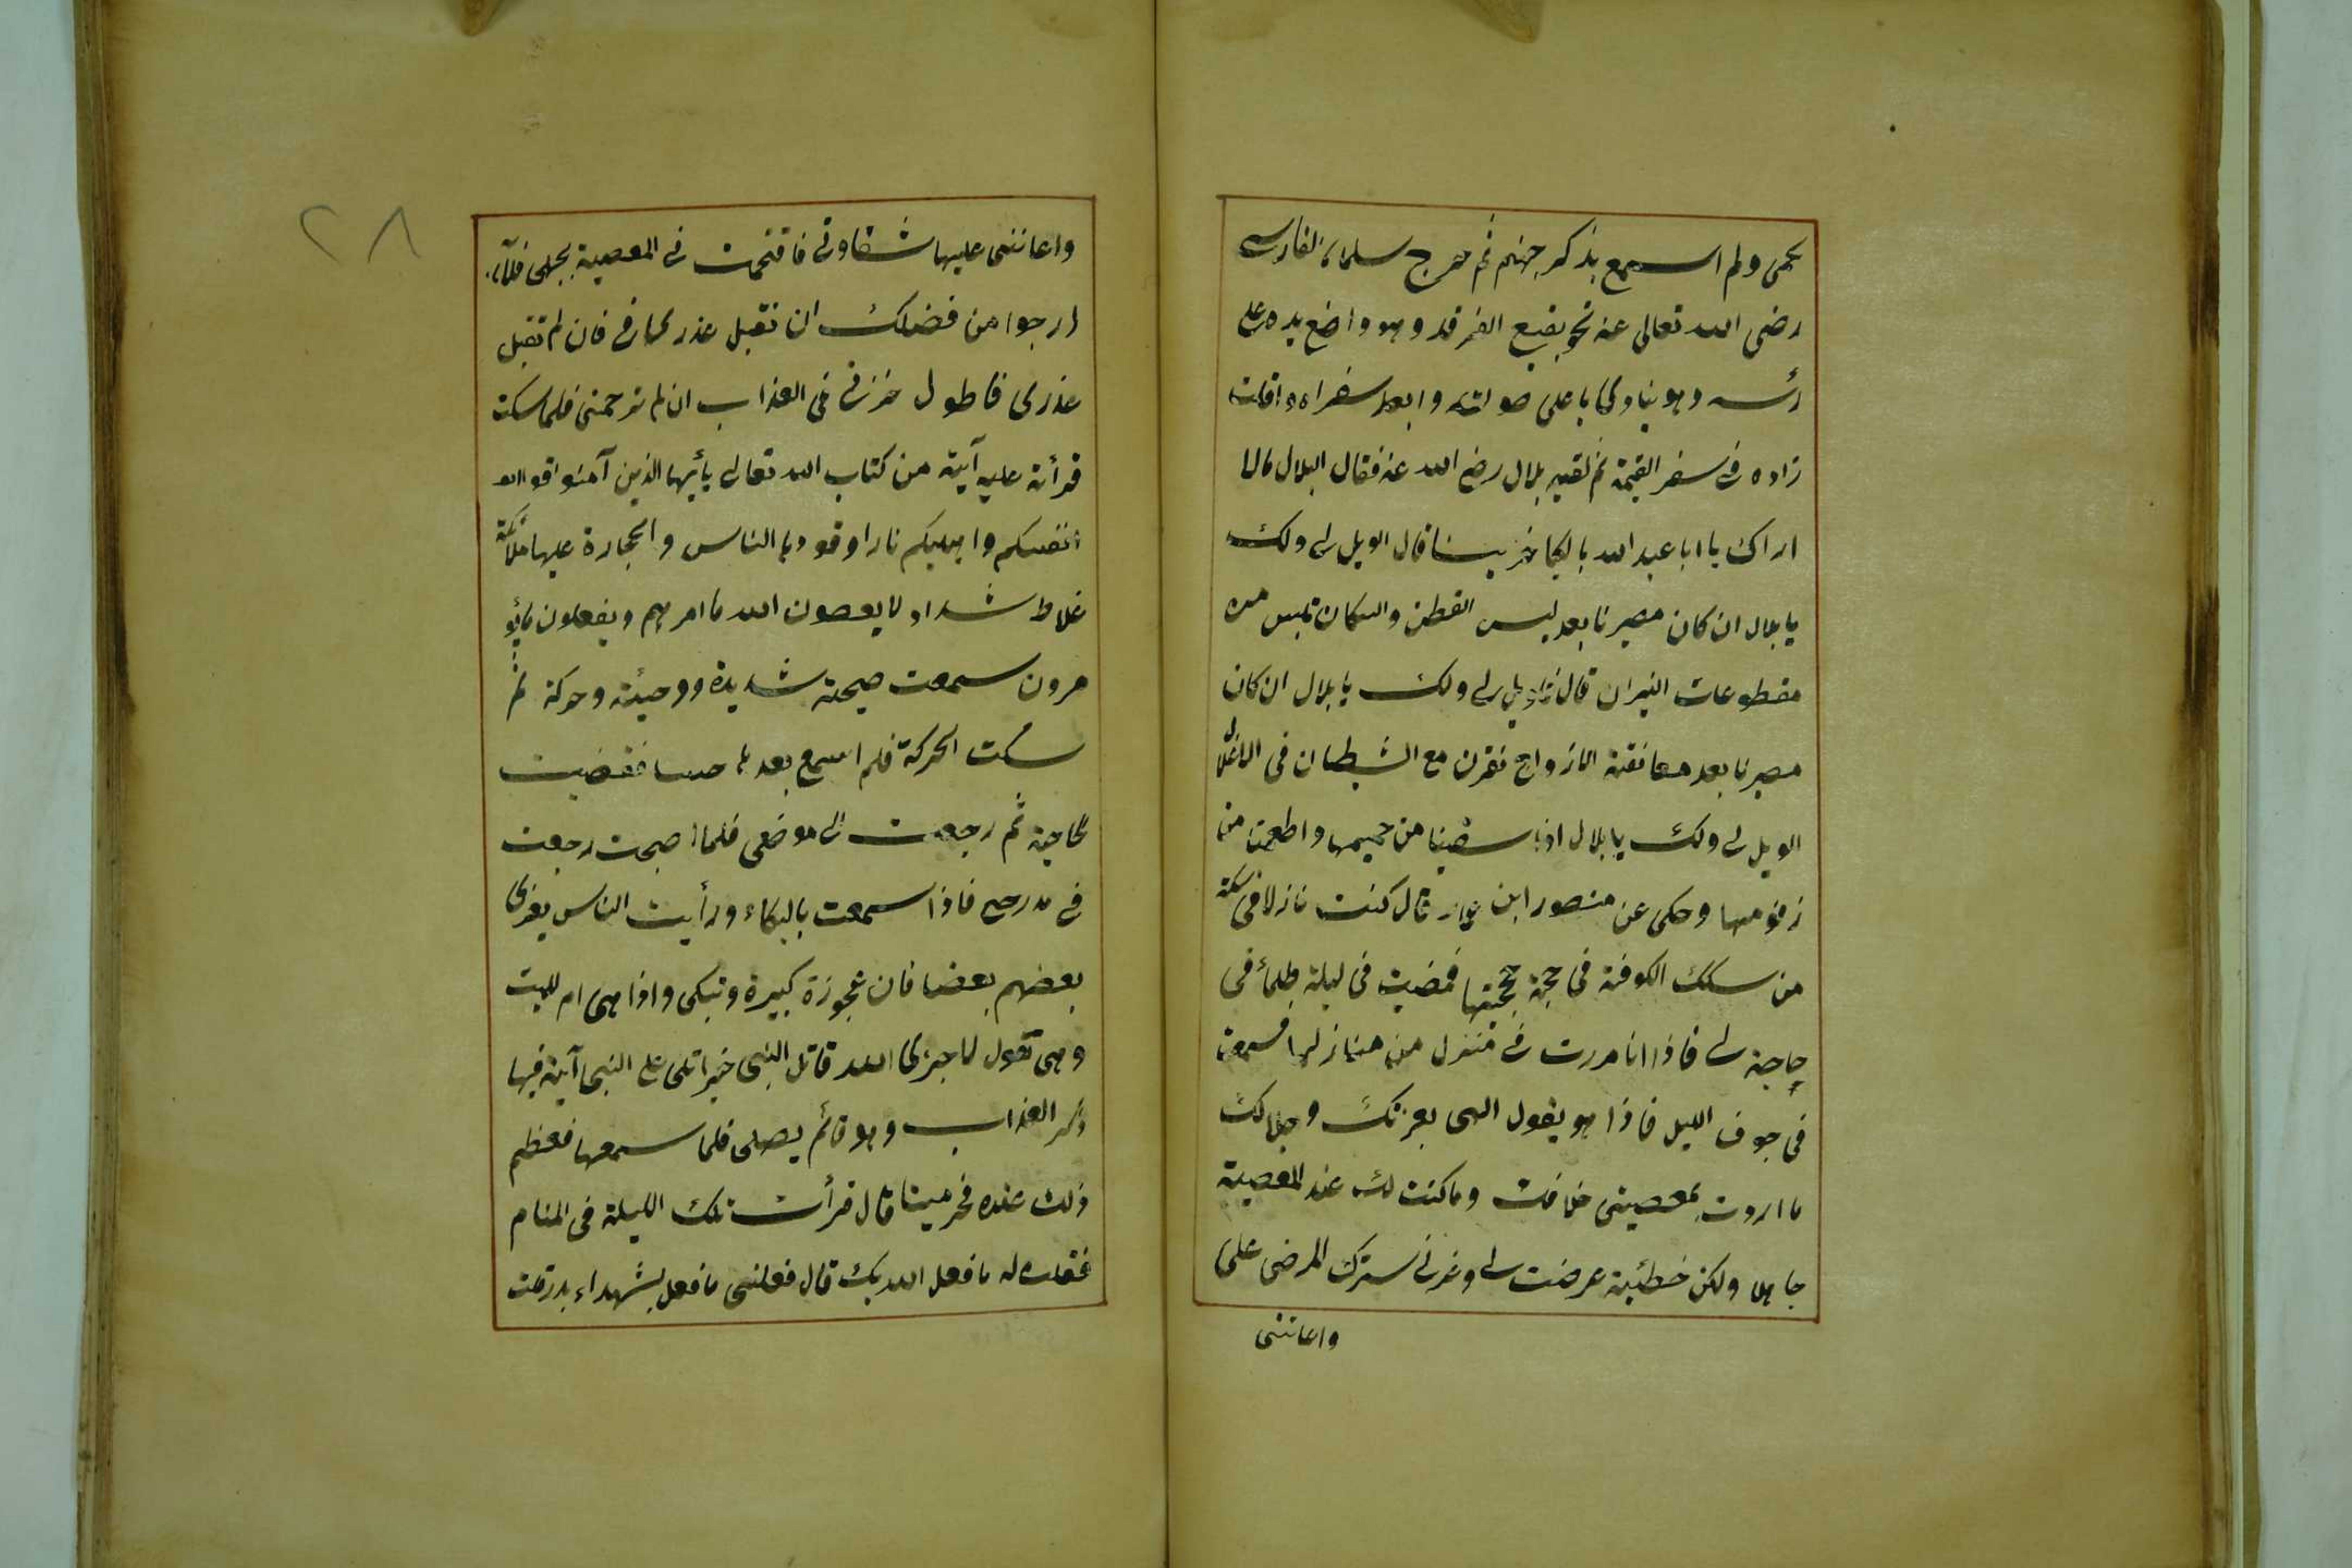 يحيى ولم اسمع بذكر جهنم ثم خرج سلمان الفارسى
رضى الله تعالى عنه نحو بقيع الغرقد وهو واضع يده على
رأسه وهو ينادى باعلى صوته وابعد سفراه واقلت
زاده فى سفر القيمة ثم لقيه بلال رضى الله عنه فقال البلال مالى
اراك يا ابا عبد الله باكيا حزينا قال الويل لى ولك
يا بلال ان كان مصيرنا بعد لبس القطن والكتان نلبس من
مقطوعات النيران قال الويل لى ولك يا بلال ان كان
مصيرنا بعد معانقة الازواج نقرن مع الشيطان فى الاغلال
الويل لى ولك يا بلال اذا سقينا من حميمها واطعمنا من
زقومها وحكى عن منصور ابن عمار قال كنت نازلا فى سكة
من سكك الكوفة فى حجة حججتها فمضيت فى ليلة ظلمأ فى
حاجة لى فاذا انا مررت فى منزل من منازلها فسمعت
فى جوف الليل فاذا هو يقول الهى بعزتك وجلالك
ما اردت بمعصيتى خلافك وما كنت لك عند المعصية
جاهلا ولكن خطئية عرضت لى وغرنى سترك المرضى على
واعاننى
٢٨
واعاننى عليها شقاوتى فاقتحمت فى المعصية بجهلى فالآن
ارجوا من فضلك ان تقبل عذرى فان لم تقبل
عذرى فاطول حزنى فى العذاب ان لم ترحمنى فلما سكت
قرأت عليه آية من كتاب الله تعالى يأيها الذين آمنوا قوا
انفسكم واهليكم نارا وقودها الناس والحجارة عليها ملائكة
غلاظ شداد لا يعصون الله ما امرهم ويفعلون ما يؤ
مرون سمعت صيحة شديدة ووجبئة وحركة ثم
سكت الحركة فلم اسمع بعدها حسا فقضيت
حاجتى ثم رجعت الى موضعى فلما اصبحت رجعت
فى مدرجى فاذا سمعت بالبكاء ورأيت الناس يعزى
بعضهم بعضا فان عجوزة كبيرة وتبكى واذا هى ام الميت
وهى تقول لا جزى الله قاتل النبى خيرا تلى على النبى آية فيها
ذكر العذاب وهو قائم يصلى فلما سمعها فعظم
ذلك عنده فخر ميتا قال فرأيت تلك الليلة فى المنام
فقلت له ما فعل الله بك قال فعل بى ما فعل بشهداء بدر قلت